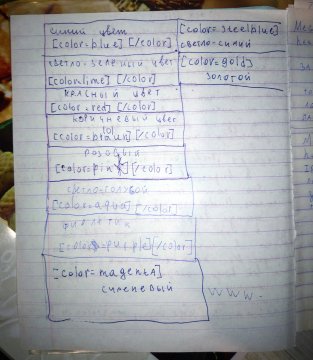 синий цвет
[color=blue] [/color]
светло-зеленый цвет
[color=lime] [/color]
красный цвет
[color=red] [/color]
коричневый цвет
[color=brown] [/color]
розовый
[color=pink] [/color]
светло-голубой
[color=aqua] [/color]
[color=purple] [/color]
[color=magenta]
сиреневый
[color=steelblue]
светло-синий
[color=gold]
золотой
www.